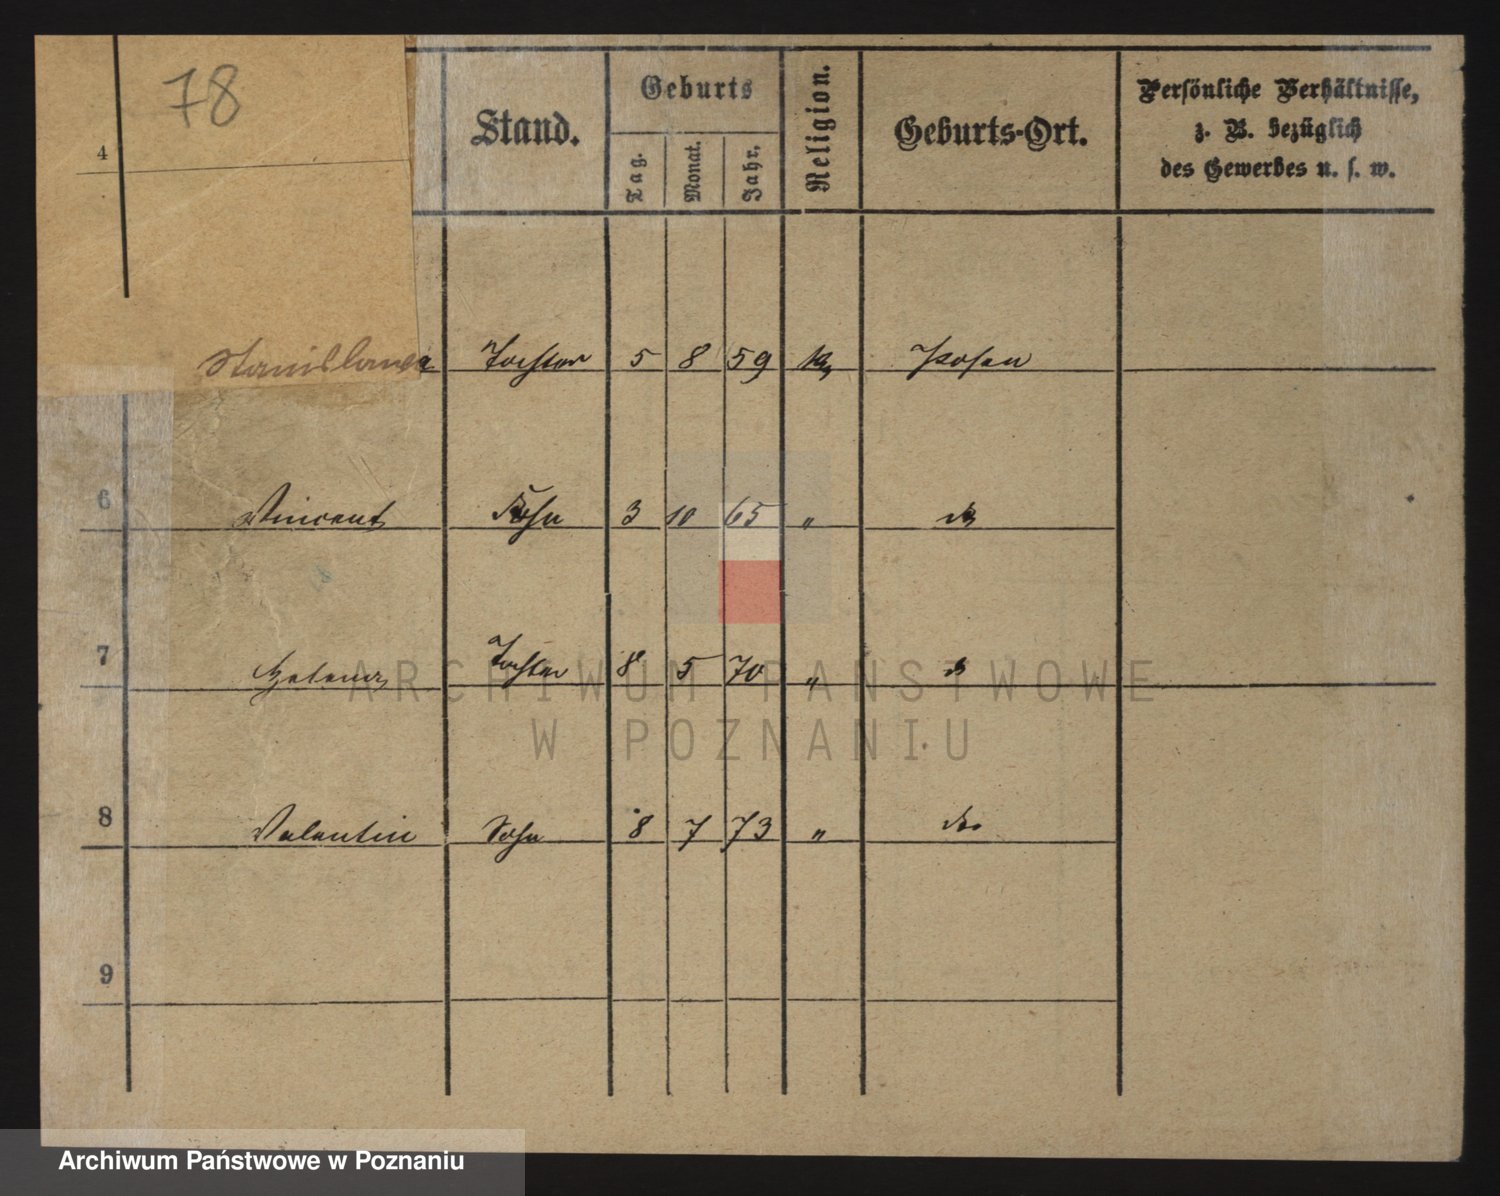 78
4
Stand.
Geburts
Tag.
Monat.
Jahr.
Religion.
Geburts-Ort.
Persönliche Verhältnisse,
z. B. bezüglich
des Gewerbes u. s. w.
Stanislawa Tochter 5 8 59 Posen
6 Vincent Sohn 3 10 65 "
7 Helena Tochter 8 5 70 "
ARCHIWUM PAŃSTWOWE
W POZNANIU
8 Valentin Sohn 8 7 73 " do
9
Archiwum Państwowe w Poznaniu